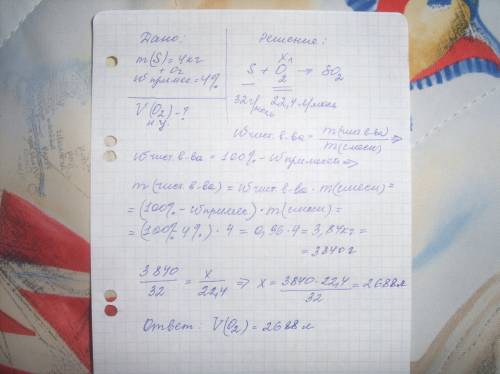 Дано:
m(S)=4кг
+O₂
Wпримес.=4%
V(O₂)-?
н.у.
Решение:
xл
S + O₂ → SO₂
2
32г/моль 22,4л/моль
Wчист.в-ва = m(чист.в-ва)/m(смеси) ⇒
Wчист.в-ва = 100% - Wпримесей ⇒
m(чист.в-ва) = Wчист.в-ва · m(смеси) =
= (100% - Wпримес) · m(смеси) =
= (100% 4%) · 4 = 0,96·4 = 3,84кг =
= 3840г
3840/32 = x/22,4 ⇒ x = 3840·22,4/32 = 2688л
Ответ: V(O₂) = 2688л